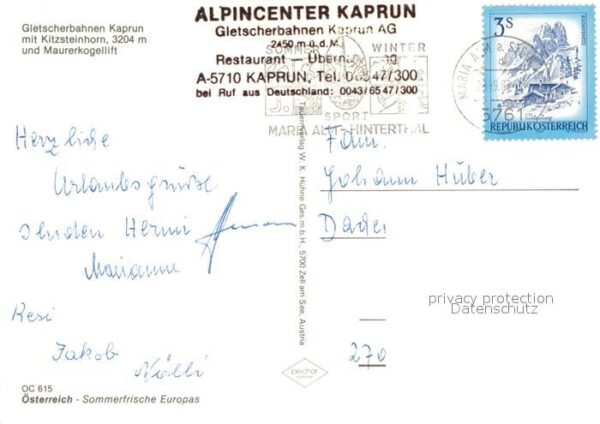 Gletscherbahnen Kaprun
mit Kitzsteinhorn, 3204 m
und Maurerkogellift
ALPINCENTER KAPRUN
Gletscherbahnen Kaprun AG
2450 m ü.d.M.
Restaurant — Übernachtung
A-5710 KAPRUN, Tel. 06547/300
bei Ruf aus Deutschland: 0043/6547/300
SOMMER WINTER
SPORT
MARIA ALM-HINTERTHAL
5761
3S
REPUBLIK ÖSTERREICH
Herzliche
Urlaubsgrüße
senden Hermi
Marianne
Resi
Jakob
Fam.
Johann Huber
270
Tauernverlag W. K. Hühne Ges.m.b.H., 5700 Zell am See, Austria
privacy protection
Datenschutz
OC 615
Österreich - Sommerfrische Europas